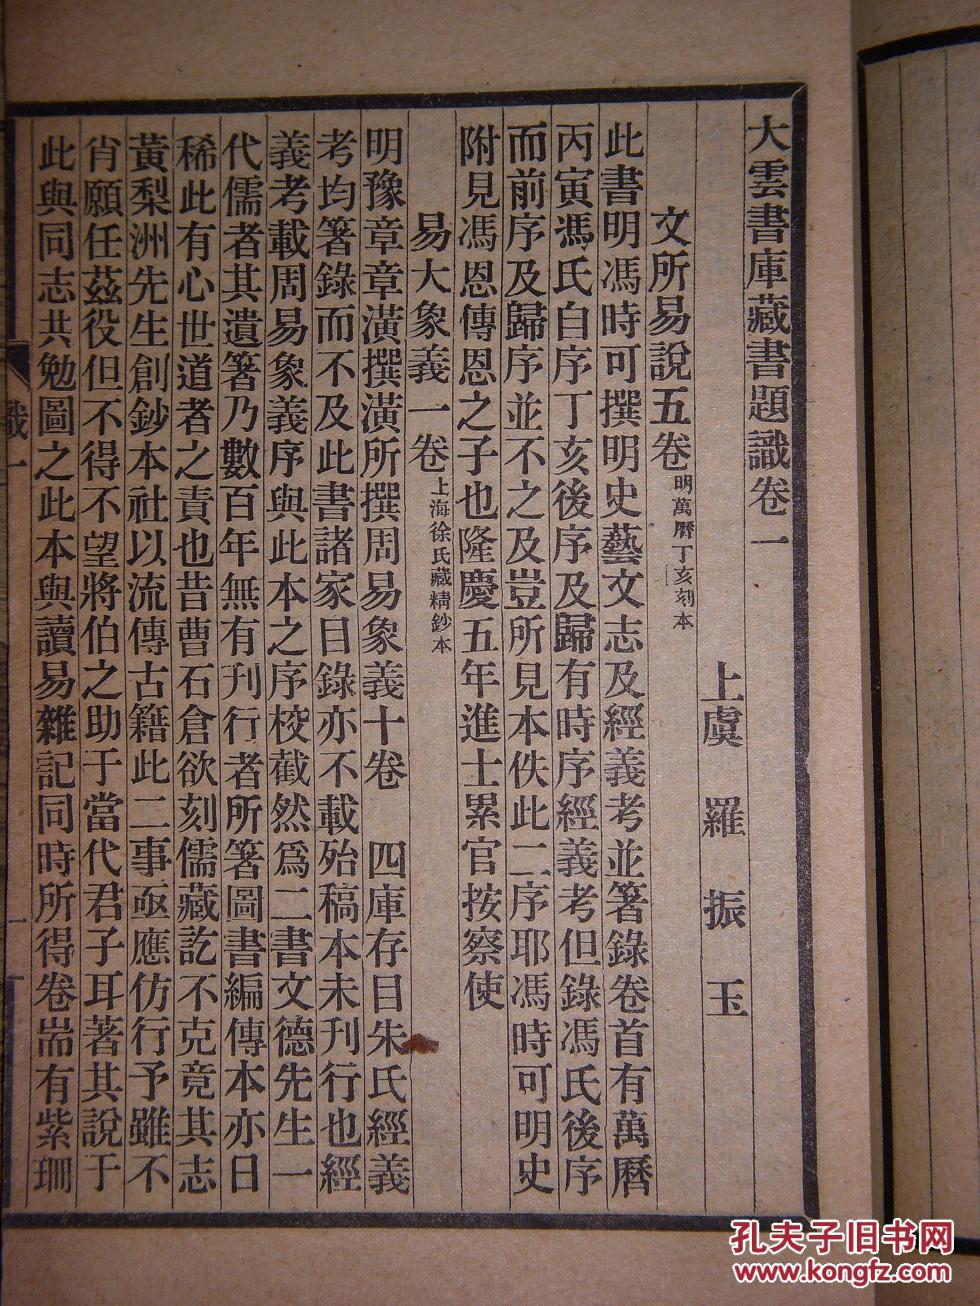 大雲書庫藏書題識卷一
上虞 羅 振 玉
文所易說五卷 明萬曆丁亥刻本
此書明馮時可撰明史藝文志及經義考並箸錄卷首有萬曆
丙寅馮氏自序丁亥後序及歸有時序經義考但錄馮氏後序
而前序及歸序並不之及豈所見本佚此二序耶馮時可明史
附見馮恩傳恩之子也隆慶五年進士累官按察使
易大象義一卷 上海徐氏藏精鈔本
明豫章章潢撰潢所撰周易象義十卷 四庫存目朱氏經義
考均箸錄而不及此書諸家目錄亦不載殆稿本未刊行也經
義考載周易象義序與此本之序校截然爲二書文德先生一
代儒者其遺箸乃數百年無有刊行者所箸圖書編傳本亦日
稀此有心世道者之責也昔曹石倉欲刻儒藏訖不克竟其志
黃梨洲先生創鈔本社以流傳古籍此二事亟應仿行予雖不
肖願任茲役但不得不望將伯之助于當代君子耳著其說于
此與同志共勉圖之此本與讀易雜記同時所得卷耑有紫珊
識一
一
孔夫子旧书网
www.kongfz.com